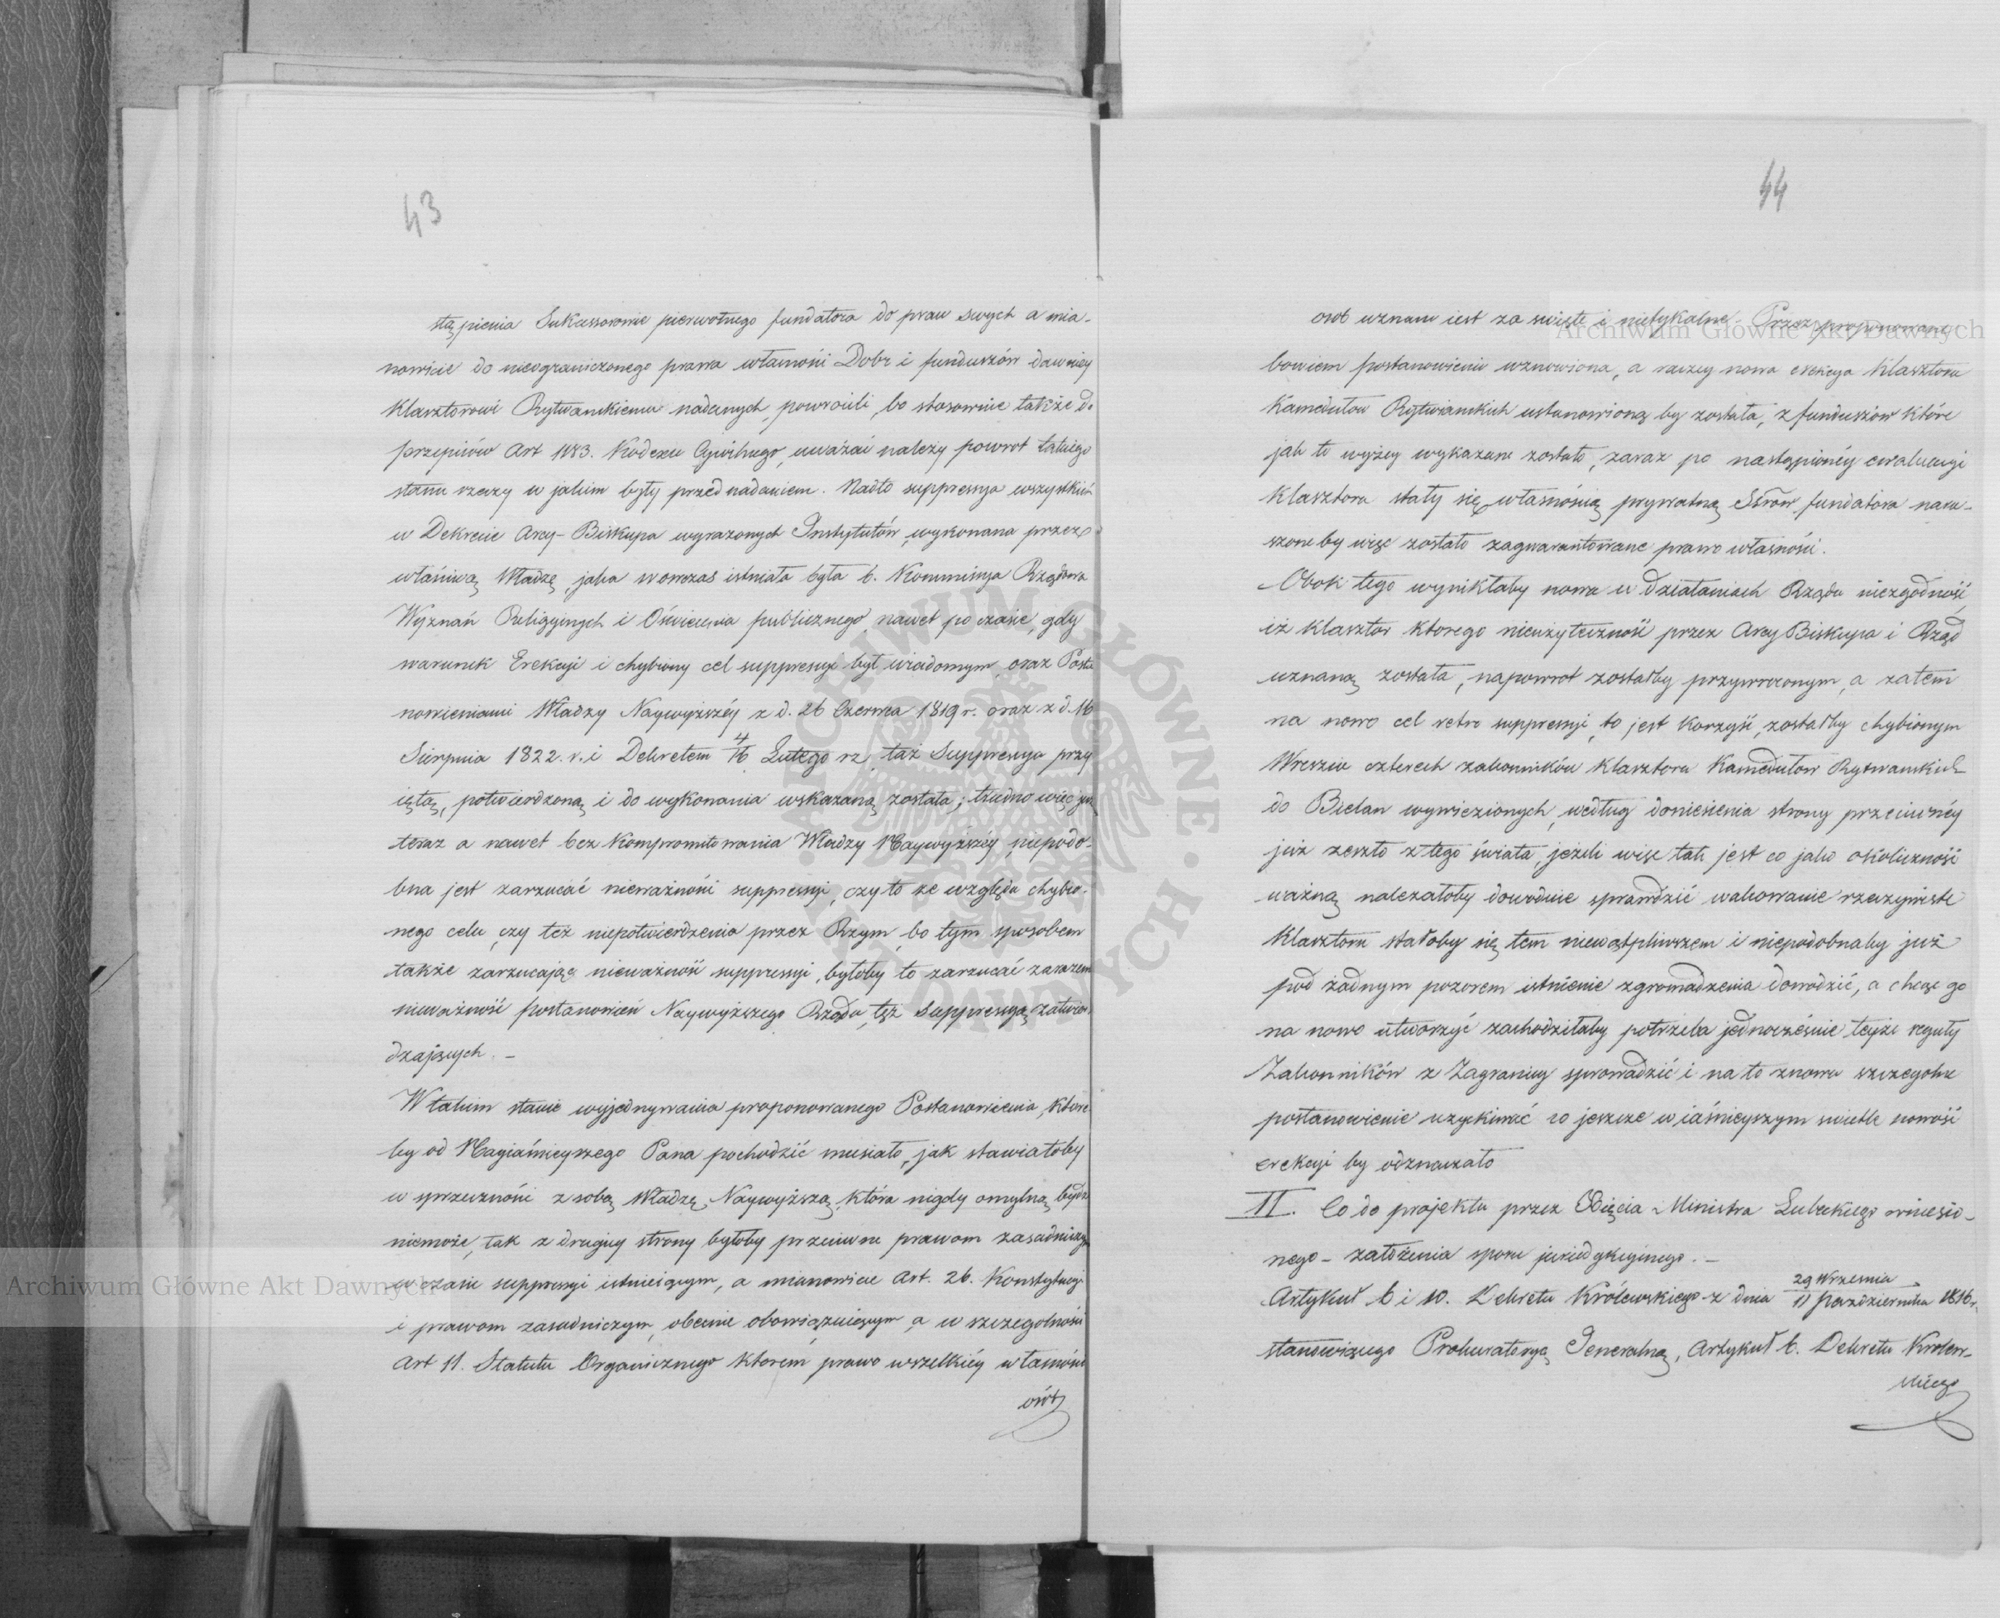 43
stąpienia Sukcessorowie pierwotnego fundatora do praw swych a mia-
nowicie do nieograniczonego prawa własności Dóbr i funduszów dawniey
Klasztorowi Rytwańskiemu nadanych powrócili, bo stosownie także do
przepisów Art 1183. Kodexu Cywilnego, uważać należy powrot takiego
stanu rzeczy w jakim były przed nadaniem. Nadto suppressya wszystkich
w Dekrecie Arcy-Biskupa wyrażonych Instytutów, wykonana przez
właściwą Władzę, jaka wowczas istniała była b. Kommissya Rządowa
Wyznań Religijnych i Oświecenia publicznego, nawet po czasie, gdy
warunek Erekcyi i chybiony cel suppressyi był wiadomym, oraz Posta
nowieniami Władzy Naywyższéy z d. 26 Czerwca 1819 r. oraz z d. 16
Sierpnia 1822. r. i Dekretem 4/16 Lutego rz. taż Suppressya przy
iętą, potwierdzoną i do wykonania wskazaną została; trudno więc już
teraz a nawet bez kompromitowania Władzy Naywyższéy, niepodo-
bna jest zarzucać nieważności suppressyi, czy to ze względu chybio-
nego celu, czy też niepotwierdzenia przez Rzym, bo tym sposobem
także zarzucając nieważność suppressyi, byłoby to zarzucać zarazem
nieważność postanowień Naywyższego Rządu, tęż Suppressyą zatwier
dzających. -
W takim stanie wyjednywania proponowanego Postanowienia, które
by od Nayiaśnieyszego Pana pochodzić musiało, jak stawiałoby
w sprzeczności z sobą Władzę Naywyższą, która nigdy omylną bydź
niemoże, tak z drugiey strony byłoby przeciwne prawom zasadniczym
w czasie suppressyi istnieiącym, a mianowicie Art. 26. Konstytucyi
i prawom zasadniczym, obecnie obowiązuiącym a w szczególności
Art 11. Statutu Organicznego którém prawo wszelkiéy własności
osób
44
osób uznane iest za święte i nietykalne. Przez proponowane
bowiem postanowienie wznowiona, a raczey nowa erekcya Klasztoru
Kamedułow Rytwiańskich ustanowioną by została, z funduszów które
jak to wyżey wykazane zostało, zaraz po nastąpionéy ewaluacyi
Klasztoru stały się własnością prywatną Ssrów fundatora naru-
szone by więc zostało zagwarantowane prawo własności.
Obok tego wynikłaby nowa w działaniach Rządu niezgodność,
iż klasztor ktorego nieużyteczność przez Arcy Biskupa i Rząd
uznaną została, napowrot zostałby przywroconym, a zatem
na nowo cel retro suppressyi, to jest korzyść, zostałby chybionym
Wreszcie czterech zakonników Klasztoru Kamedułow Rytwańskich
do Bielan wywiezionych, według doniesienia strony przeciwnéy
już zeszło z tego świata, jeżeli więc tak jest co jako okoliczność
ważną należałoby dowodnie sprawdzić wakowanie rzeczywiste
Klasztoru stałoby się tem niewątpliwszem i niepodobnaby już
pod żadnym pozorem istnienie zgromadzenia dowodzić, a chcąc go
na nowo utworzyć zachodziłaby potrzeba jednocześnie teyże reguły
Zakonników z Zagranicy sprowadzić i na to znowu szczególne
postanowienie uzyskiwać co jeszcze w iaśnieyszym świetle nowość
erekcyi by odznaczało
II. Co do projektu przez Xięcia Ministra Lubeckiego wniesio-
nego - założenia sporu jurisdykcyinego. -
Artykuł 6 i 10. Dekretu Królewskiego z dnia 29 Września/11 Października 1816 r.
stanowiącego Prokuratoryą Jeneralną, Artykuł 6. Dekretu Królew-
skiego
Archiwum Główne Akt Dawnych
Archiwum Główne Akt Dawnych
ARCHIWUM GŁÓWNE AKT DAWNYCH